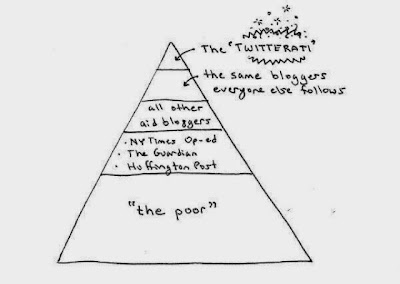 The "TWITTERATI"
the same bloggers
everyone else follows
all other
aid bloggers
• NY Times Op-ed
• The Guardian
• Huffington Post
"the poor"